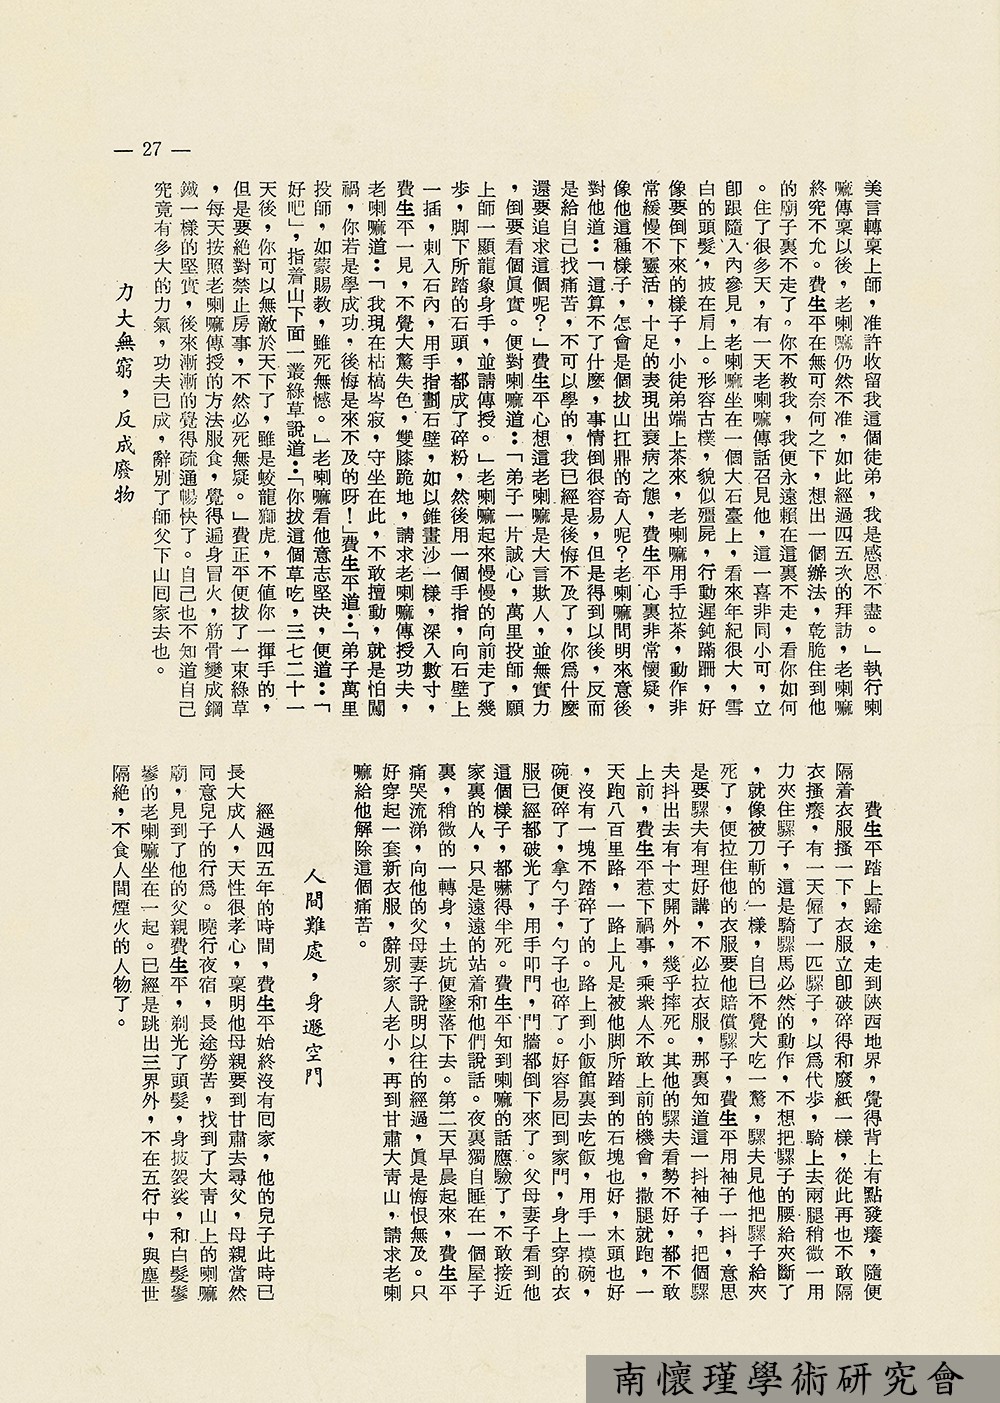 — 27 —
美言轉稟上師，准許收留我這個徒弟，我是感恩不盡。」執行喇
嘛傳稟以後，老喇嘛仍然不准，如此經過四五次的拜訪，老喇嘛
終究不允。費生平在無可奈何之下，想出一個辦法，乾脆住到他
的廟子裏不走了。你不教我，我便永遠賴在這裏不走，看你如何
。住了很多天，有一天老喇嘛傳話召見他，這一喜非同小可，立
即跟隨入內參見，老喇嘛坐在一個大石臺上，看來年紀很大，雪
白的頭髮，披在肩上。形容古樸，貌似殭屍，行動遲鈍蹣跚，好
像要倒下來的樣子，小徒弟端上茶來，老喇嘛用手拉茶，動作非
常緩慢不靈活，十足的表現出衰病之態，費生平心裏非常懷疑，
像他這種樣子，怎會是個拔山扛鼎的奇人呢？老喇嘛問明來意後
對他道：「這算不了什麼，事情倒很容易，但是得到以後，反而
是給自己找痛苦，不可以學的，我已經是後悔不及了，你爲什麼
還要追求這個呢？」費生平心想這老喇嘛是大言欺人，並無實力
，倒要看個眞實。便對喇嘛道：「弟子一片誠心，萬里投師，願
上師一顯龍象身手，並請傳授。」老喇嘛起來慢慢的向前走了幾
步，脚下所踏的石頭，都成了碎粉，然後用一個手指，向石壁上
一插，刺入石內，用手指劃石壁，如以錐畫沙一樣，深入數寸，
費生平一見，不覺大驚失色，雙膝跪地，請求老喇嘛傳授功夫，
老喇嘛道：「我現在枯槁岑寂，守坐在此，不敢擅動，就是怕闖
禍，你若是學成功，後悔是來不及的呀！」費生平道：「弟子萬里
投師，如蒙賜教，雖死無憾。」老喇嘛看他意志堅決，便道：「
好吧」，指着山下面一叢綠草說道：「你拔這個草吃，三七二十一
天後，你可以無敵於天下了，雖是蛟龍獅虎，不值你一揮手的，
但是要絕對禁止房事，不然必死無疑。」費正平便拔了一束綠草
，每天按照老喇嘛傳授的方法服食，覺得遍身冒火，筋骨變成鋼
鐵一樣的堅實，後來漸漸的覺得疏通暢快了。自己也不知道自己
究竟有多大的力氣，功夫已成，辭別了師父下山回家去也。
力大無窮，反成廢物
費生平踏上歸途，走到陝西地界，覺得背上有點發癢，隨便
隔着衣服搔一下，衣服立即破碎得和廢紙一樣，從此再也不敢隔
衣搔癢，有一天僱了一匹騾子，以爲代步，騎上去兩腿稍微一用
力夾住騾子，這是騎騾馬必然的動作，不想把騾子的腰給夾斷了
，就像被刀斬的一樣，自已不覺大吃一驚，騾夫見他把騾子給夾
死了，便拉住他的衣服要他賠償騾子，費生平用袖子一抖，意思
是要騾夫有理好講，不必拉衣服，那裏知道這一抖袖子，把個騾
夫抖出去有十丈開外，幾乎摔死。其他的騾夫看勢不好，都不敢
上前，費生平惹下禍事，乘衆人不敢上前的機會，撒腿就跑，一
天跑八百里路，一路上凡是被他脚所踏到的石塊也好，木頭也好
，沒有一塊不踏碎了的。路上到小飯館裏去吃飯，用手一摸碗，
碗便碎了，拿勺子，勺子也碎了。好容易回到家門，身上穿的衣
服已經都破光了，用手叩門，門牆都倒下來了。父母妻子看到他
這個樣子，都嚇得半死。費生平知到喇嘛的話應驗了，不敢接近
家裏的人，只是遠遠的站着和他們說話。夜裏獨自睡在一個屋子
裏，稍微的一轉身，土坑便墜落下去。第二天早晨起來，費生平
痛哭流涕，向他的父母妻子說明以往的經過，眞是悔恨無及。只
好穿起一套新衣服，辭別家人老小，再到甘肅大靑山，請求老喇
嘛給他解除這個痛苦。
人間難處，身遯空門
經過四五年的時間，費生平始終沒有回家，他的兒子此時已
長大成人，天性很孝心，稟明他母親要到甘肅去尋父，母親當然
同意兒子的行爲。曉行夜宿，長途勞苦，找到了大靑山上的喇嘛
廟，見到了他的父親費生平，剃光了頭髮，身披袈裟，和白髮鬖
鬖的老喇嘛坐在一起。已經是跳出三界外，不在五行中，與塵世
隔絕，不食人間煙火的人物了。
南懷瑾學術研究會